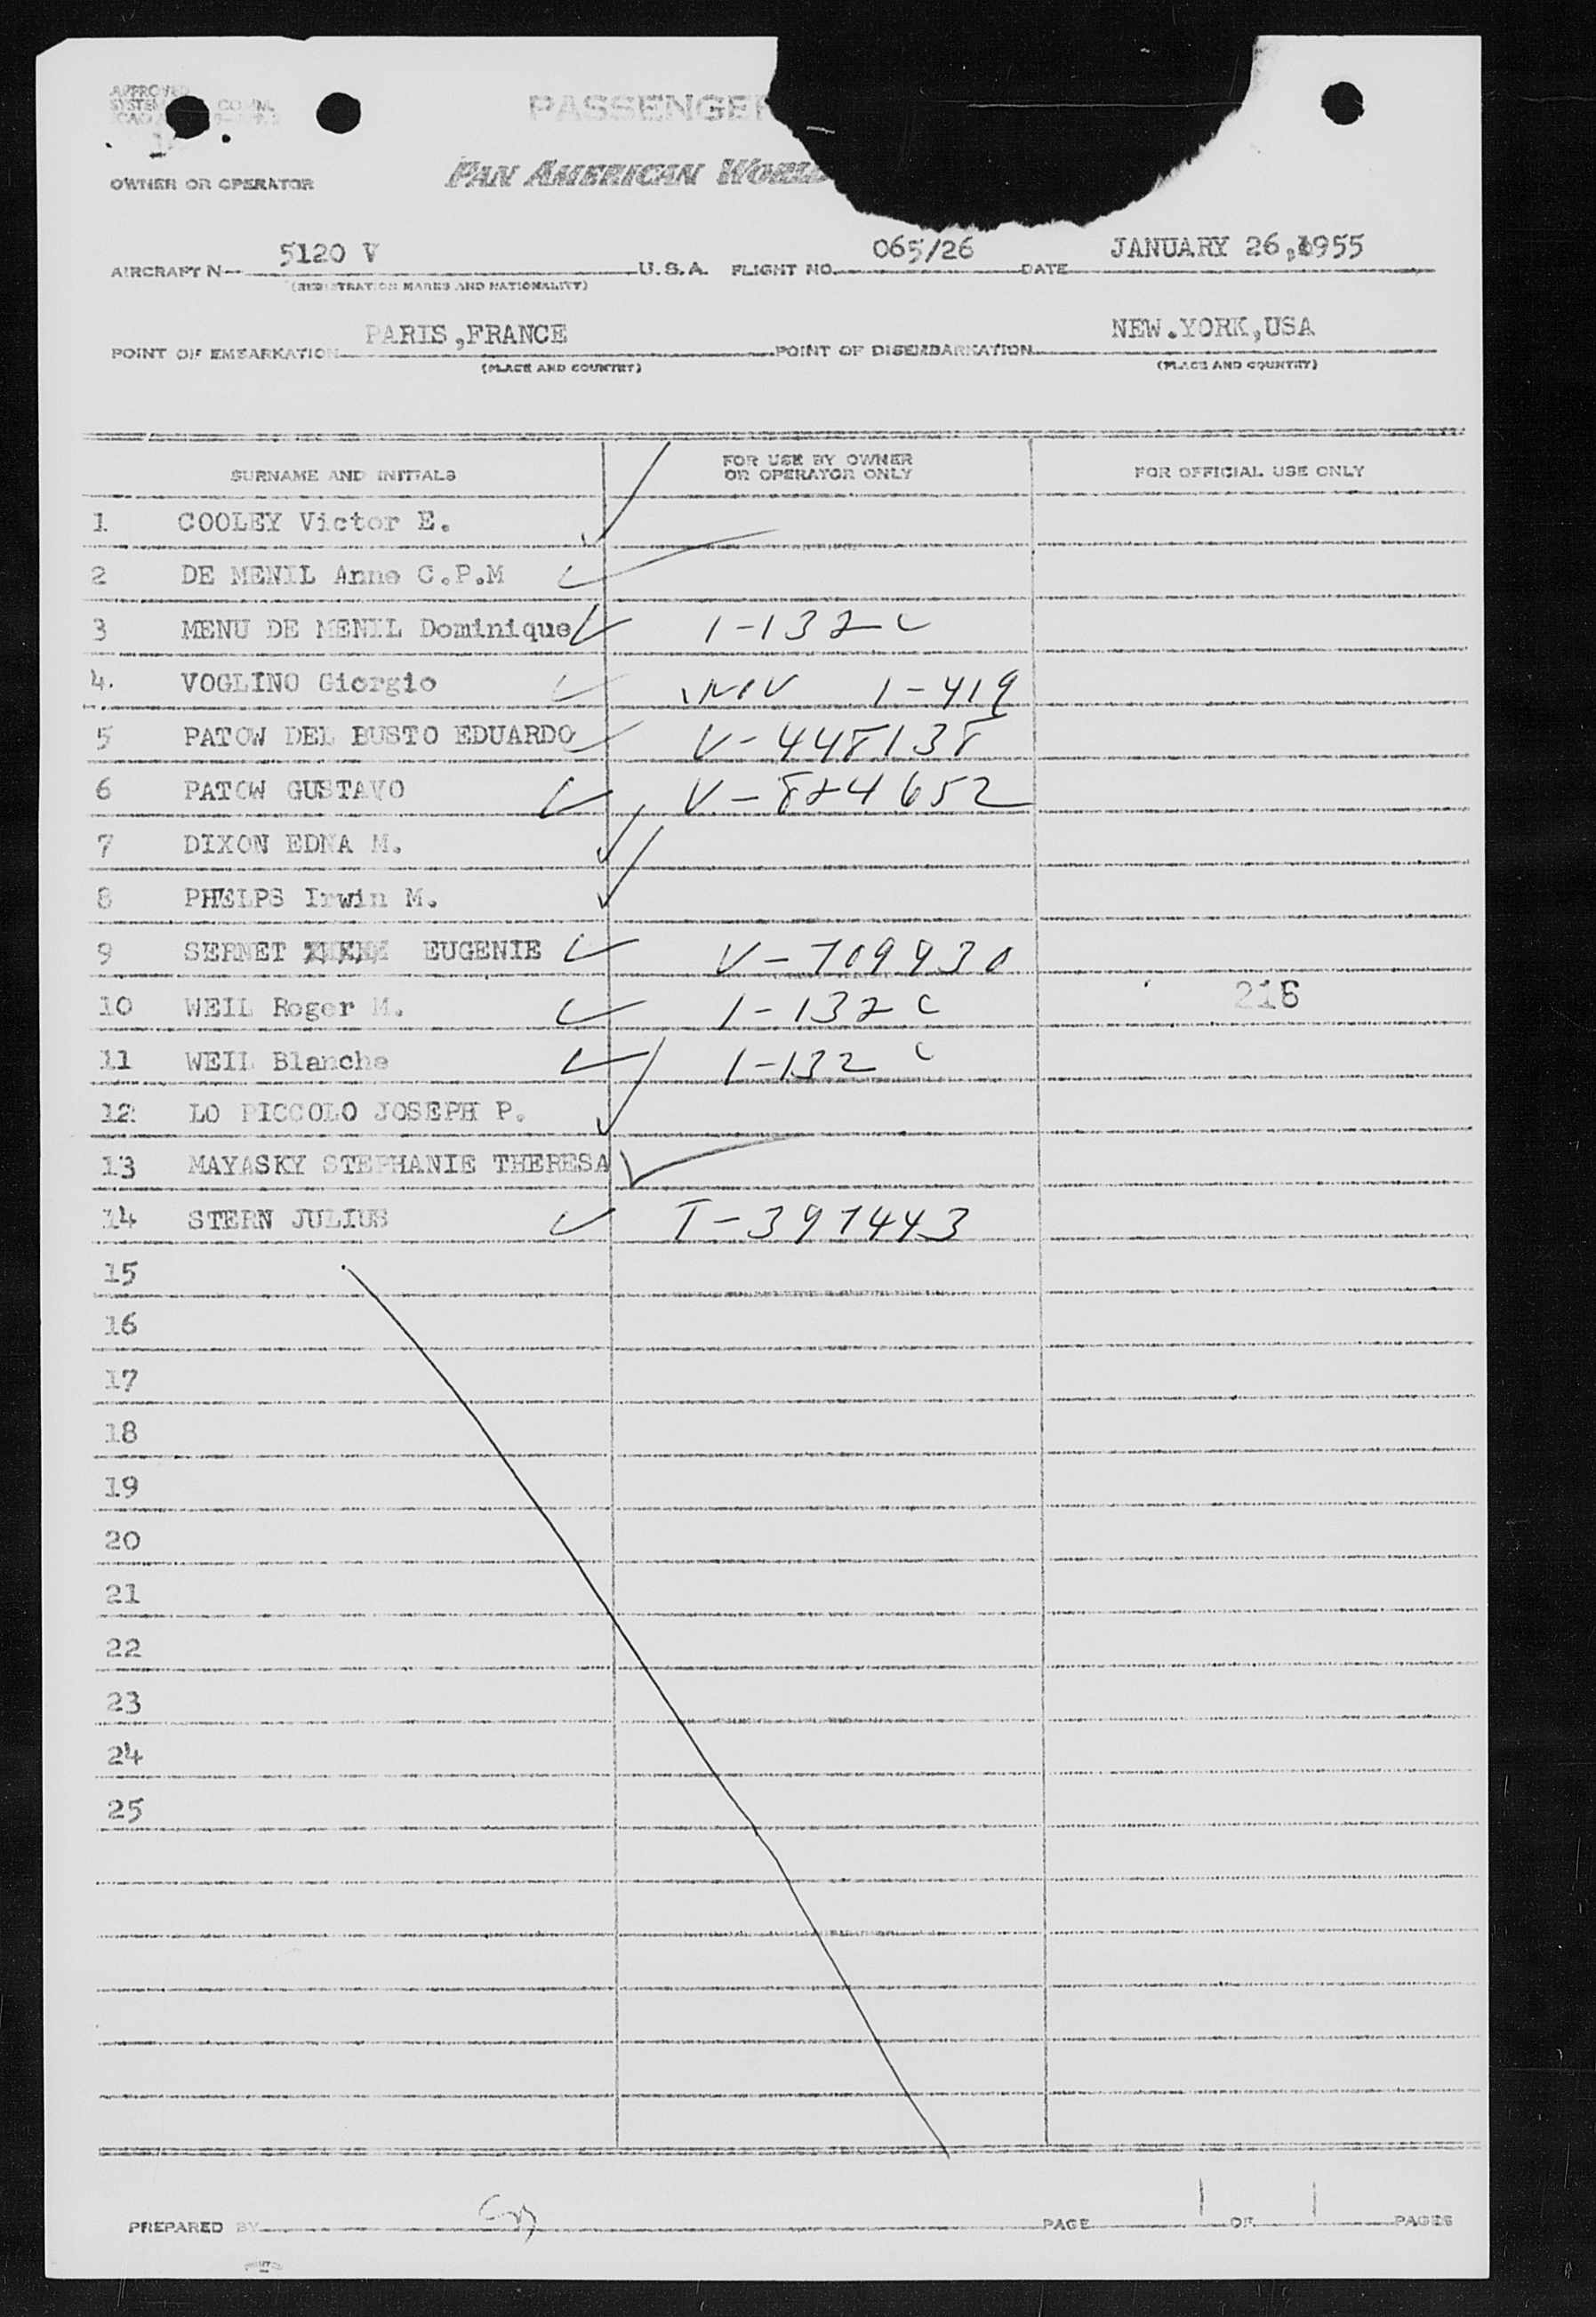 APPROVED
SYSTEM COMM.
PASSENGER
OWNER OR OPERATOR PAN AMERICAN WORLD
AIRCRAFT N- 5120 V U.S.A. FLIGHT NO. 065/26 DATE JANUARY 26,1955
(REGISTRATION MARKS AND NATIONALITY)
POINT OF EMBARKATION PARIS,FRANCE POINT OF DISEMBARKATION NEW.YORK,USA
(PLACE AND COUNTRY) (PLACE AND COUNTRY)
SURNAME AND INITIALS FOR USE BY OWNER OR OPERATOR ONLY FOR OFFICIAL USE ONLY
1 COOLEY Victor E.
2 DE MENIL Anne C.P.M
3 MENU DE MENIL Dominique 1-132 C
4. VOGLINO Giorgio NIV 1-419
5 PATOW DEL BUSTO EDUARDO V-448138
6 PATOW GUSTAVO V-824652
7 DIXON EDNA M.
8 PHELPS Irwin M.
9 SERNET EUGENIE V-709930
10 WEIL Roger M. 1-132 C 216
11 WEIL Blanche 1-132 C
12 LO PICCOLO JOSEPH P.
13 MAYASKY STEPHANIE THERESA
14 STERN JULIUS T-397443
15
16
17
18
19
20
21
22
23
24
25
PREPARED BY PAGE 1 OF 1 PAGES